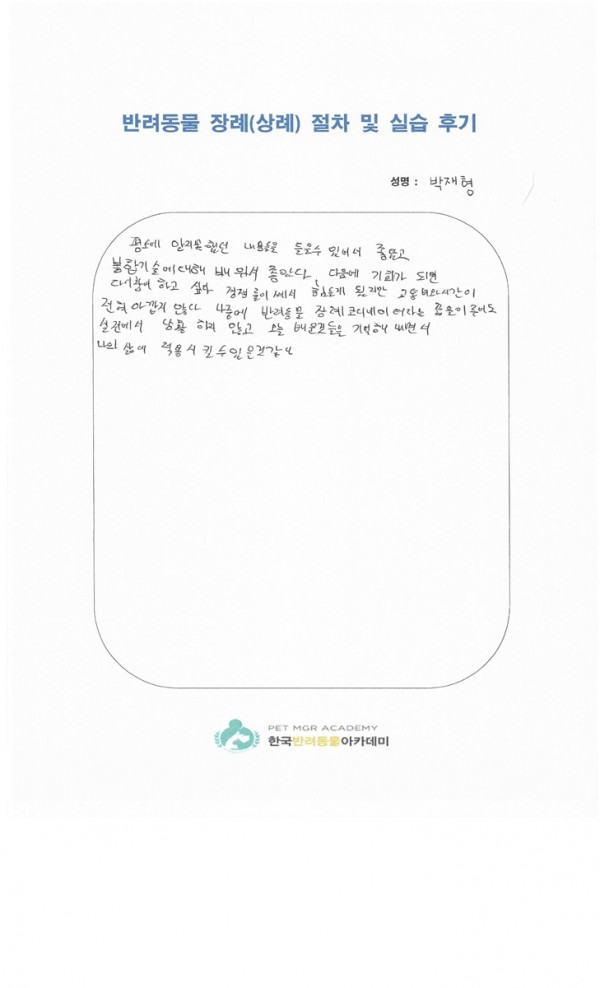 반려동물 장례(상례) 절차 및 실습 후기
성명 : 박재형
평소에 알지못했던 내용들을 들을수 있어서 좋았고
봉합기술에대해 배워서 좋았다. 다음에 기회가 되면
다시참여 하고 싶다 경쟁률이 쎄서 힘들게 됬지만 교육
전혀 아깝지 않다 나중에 반려동물 장례코디네이터라는 꿈을이루어도
실전에서 당황 하지 않고 오늘 배운것들을 기억해내면서
나의 삶에 적용시킬 수있을것같다
PET MGR ACADEMY
한국반려동물아카데미